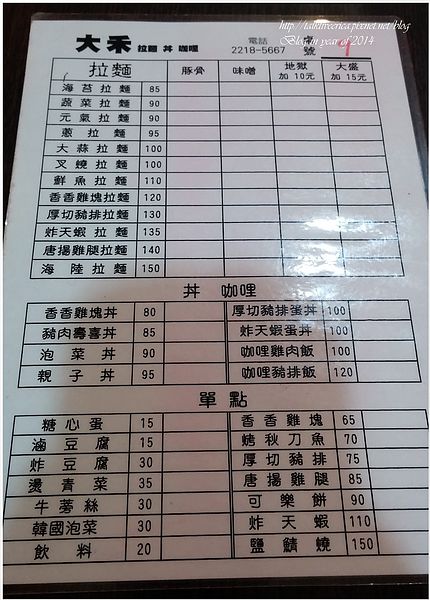 http://talktoerica.pixnet.net/blog
Blog in year of 2014
大禾 拉麵 丼 咖哩 電話 2218-5667 桌號 9
拉麵 豚骨 味噌 地獄 加10元 大盛 加15元
海苔拉麵 85
蔬菜拉麵 90
元氣拉麵 90
蔥拉麵 95
大蒜拉麵 100
叉燒拉麵 100
鮮魚拉麵 110
香香雞塊拉麵 120
厚切豬排拉麵 130
炸天蝦拉麵 135
唐揚雞腿拉麵 140
海陸拉麵 150
丼 咖哩
香香雞塊丼 80 厚切豬排蛋丼 100
豬肉壽喜丼 85 炸天蝦蛋丼 100
泡菜丼 90 咖哩雞肉飯 100
親子丼 95 咖哩豬排飯 120
單點
糖心蛋 15 香香雞塊 65
滷豆腐 15 秋刀魚 70
炸豆腐 30 厚切豬排 75
燙青菜 35 唐揚雞腿 85
牛蒡絲 30 可樂餅 90
韓國泡菜 30 炸天蝦 110
飲料 20 鹽鯖燒 150